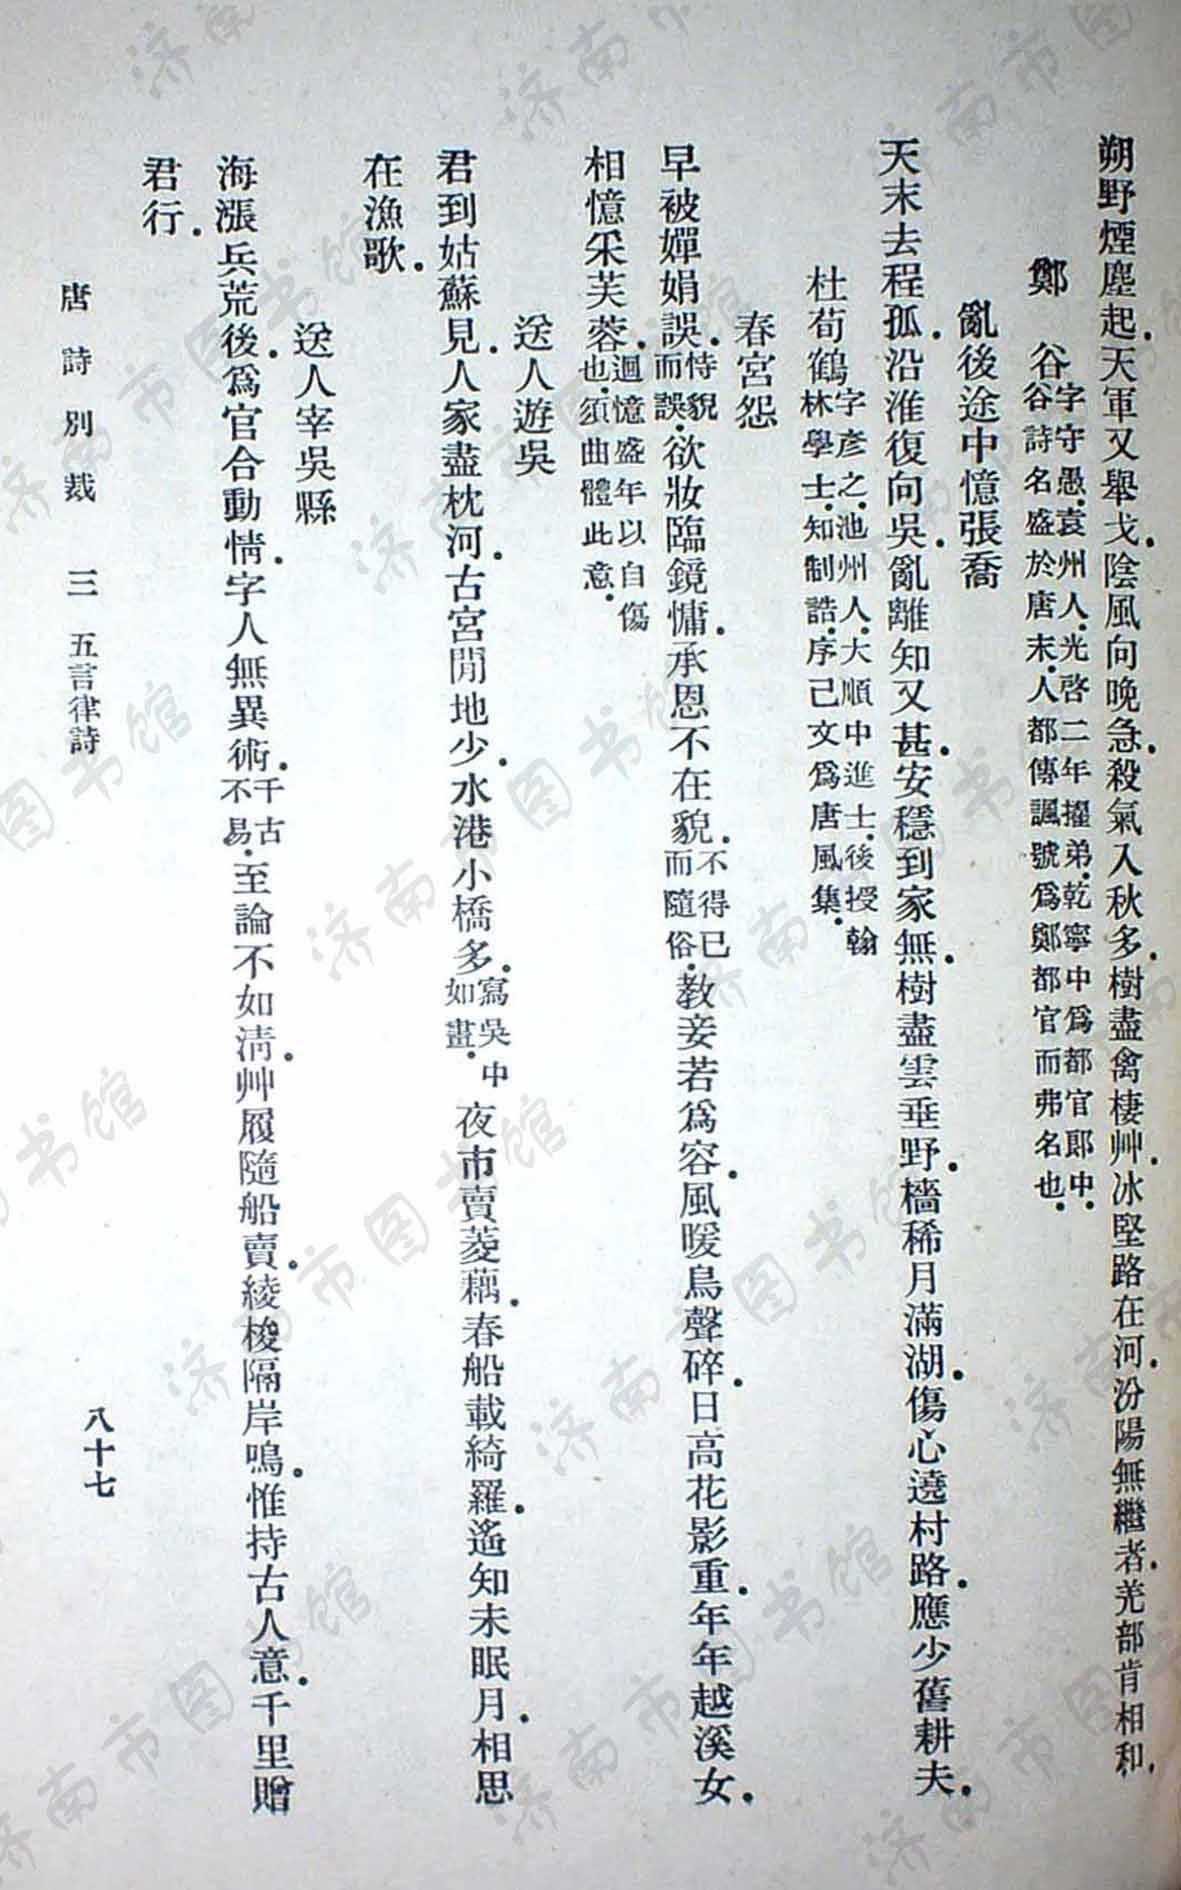 朔野煙塵起.天軍又舉戈.陰風向晚急.殺氣入秋多.樹盡禽棲艸.冰堅路在河.汾陽無繼者.羌部肯相和.
鄭谷字守愚.袁州人.光啓二年擢弟.乾寧中爲都官郎中.谷詩名盛於唐末.人都傳諷號爲鄭都官而弗名也.
亂後途中憶張喬
天末去程孤.沿淮復向吳.亂離知又甚.安穩到家無.樹盡雲垂野.檣稀月滿湖.傷心遶村路.應少舊耕夫.
杜荀鶴字彥之.池州人.大順中進士.後授翰林學士.知制誥.序己文爲唐風集.
春宮怨
早被嬋娟誤.恃貌而誤.欲妝臨鏡慵.承恩不在貌.不得已而隨俗.教妾若爲容.風暖鳥聲碎.日高花影重.年年越溪女.
相憶采芙蓉.迴憶盛年以自傷也.須曲體此意.
送人遊吳
君到姑蘇見.人家盡枕河.古宮閒地少.水港小橋多.寫吳中如畫.夜市賣菱藕.春船載綺羅.遙知未眠月.相思
在漁歌.
送人宰吳縣
海漲兵荒後.爲官合動情.字人無異術.千古不易.至論不如清.艸履隨船賣.綾梭隔岸鳴.惟持古人意.千里贈
君行.
唐詩別裁 三 五言律詩 八十七
济南市图书馆